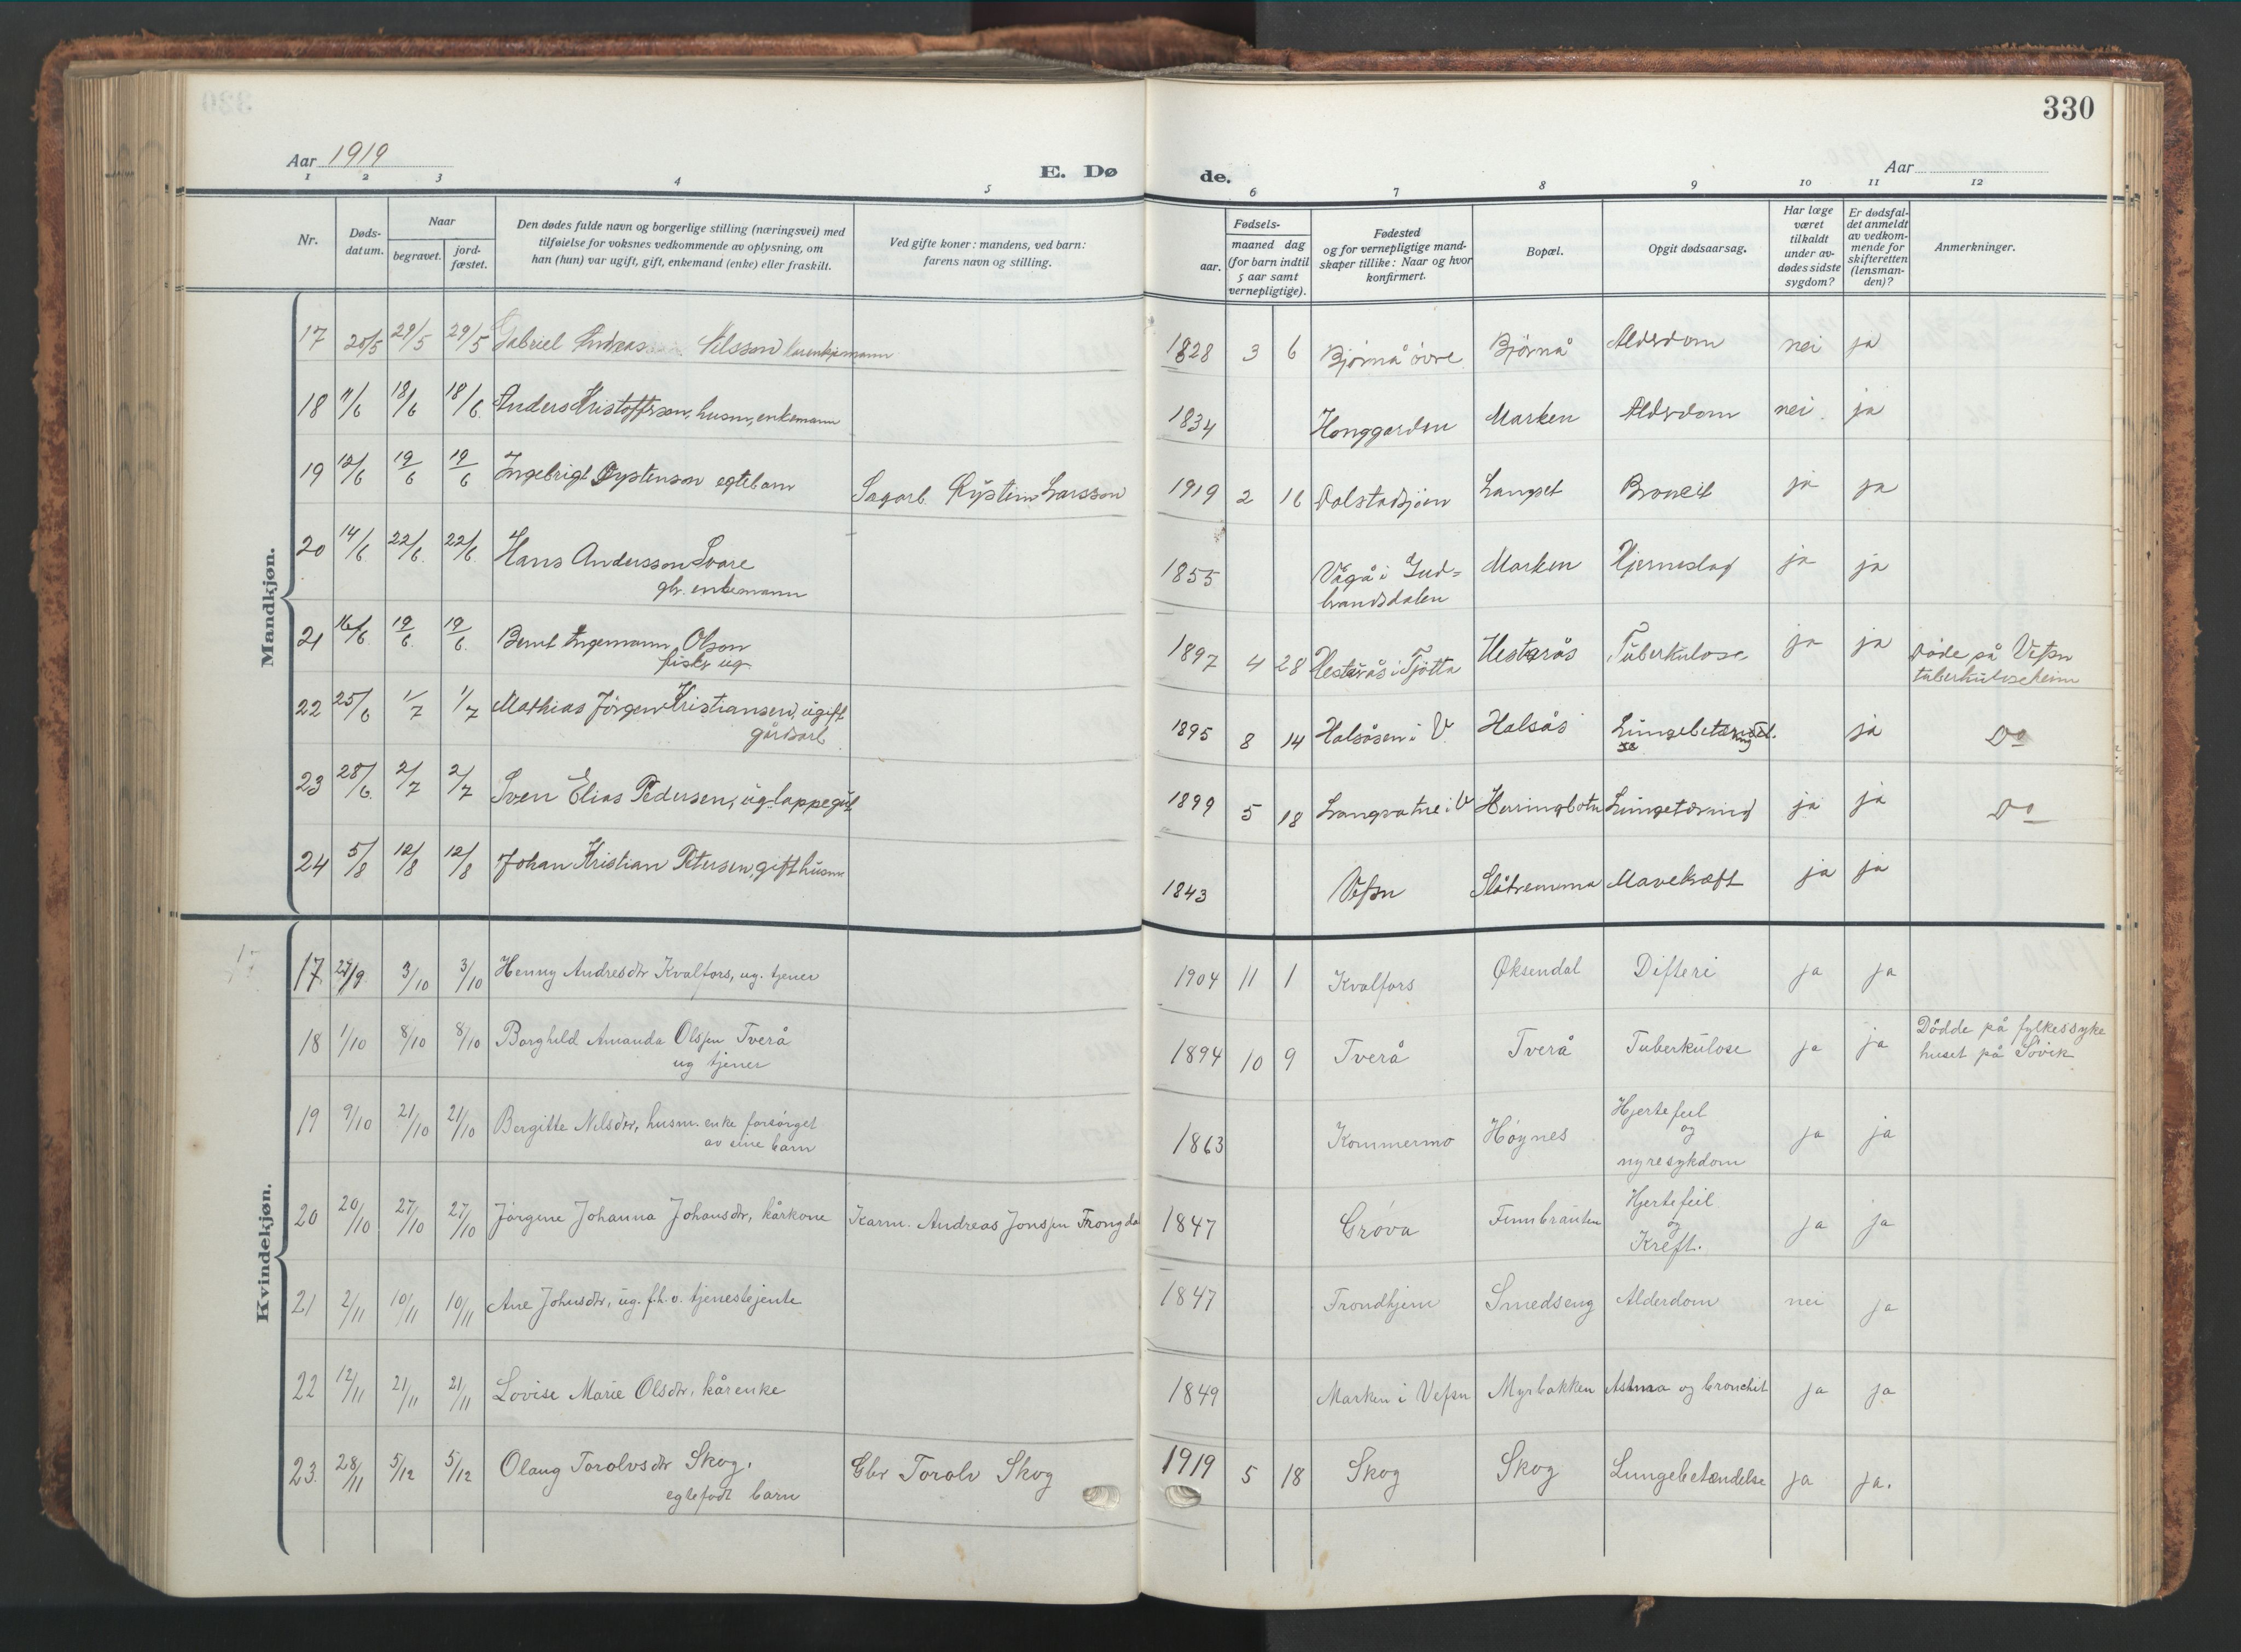 330
Aar 1919
E. Døde.
Aar
1 2 3 4 5 6 7 8 9 10 11 12
Nr.
Døds-
datum.
Naar
begravet.
jord-
fæstet.
Den dødes fulde navn og borgerlige stilling (næringsvei) med
tilføielse for voksnes vedkommende av oplysning, om
han (hun) var ugift, gift, enkemand (enke) eller fraskilt.
Ved gifte koner: mandens, ved barn:
farens navn og stilling.
Fødsels-
aar.
maaned dag
(for barn indtil
5 aar samt
vernepligtige).
Fødested
og for vernepligtige mand-
skaper tillike: Naar og hvor
konfirmert.
Bopæl.
Opgit dødsaarsag.
Har læge
været
tilkaldt
under av-
dødes sidste
sygdom?
Er dødsfal-
det anmeldt
av vedkom-
mende for
skifteretten
(lensman-
den)?
Anmerkninger.
Mandkjøn.
17 20/5 29/5 29/5 Gabriel Andreas Nilsson 1828 3 6 Bjørnå övre Bjørnå Alderdom nei ja
18 11/6 18/6 18/6 Anders Kristoffrson, husm, enkemann 1834 Honggarden Marken Alderdom nei ja
19 12/6 19/6 19/6 Ingebrigt Øystenson egtebarn Sagarb. Øystein Larsson 1919 2 16 Dolstadsjøen Langset Bronkit ja ja
20 14/6 22/6 22/6 Hans Andersson Svare
gbr. enkemann 1855 Vågå i Gud-
brandsdalen Marken Hjerneslag ja ja
21 16/6 19/6 19/6 Bernt Ingemann Olson
fisker ug. 1897 4 28 Hesterås i Tjötta Hesterås Tuberkulose ja ja Döde på Vefsn
tuberkuloseheim
22 25/6 1/7 1/7 Mathias Jörgen Kristiansen, ugift
gårdsarb. 1895 8 14 Halsåsen i V Halsås ja Do
23 28/6 2/7 2/7 Sven Elias Pedersen, ug. lappegut 1899 5 18 Langvatne i V Herringbotn Lungetæring ja ja Do
24 5/8 12/8 12/8 Johan Kristian Petersen, gift husm 1843 Vefsn Slåtremma Mavekræft ja ja
Kvindekjøn.
17 29/9 3/10 3/10 Henny Andresdtr Kvalfors, ug. tjener 1904 11 1 Kvalfors Øksendal Difteri ja ja
18 1/10 8/10 8/10 Borghild Amanda Olsen Tverå
ug tjener 1894 10 9 Tverå Tverå Tuberkulose ja ja Dödde på fylkessyke
huset på Sövik
19 9/10 21/10 21/10 Bergitte Nilsdtr, husm. enke forsörget
av sine barn 1863 Kommermo Höynes Hjertefeil
og
nyresykdom ja ja
20 20/10 27/10 27/10 Jörgine Johanna Johansdtr, kårkone Karm. Andreas Jonsen Trongda 1847 Gröva Finnbrauten Hjertefeil
og
Kreft. ja ja
21 2/11 10/11 10/11 Ane Johnsdtr, ug. f.h.v. tjenestejente 1847 Trondhjem Smedseng Alderdom nei ja
22 12/11 21/11 21/11 Lovise Marie Olsdtr, kårenke 1849 Marken i Vefsn Myrbakken Astma og bronchit ja ja
23. 28/11 5/12 5/12 Olaug Torolvsdtr Skog.
egtefödt barn Gbr Torolv Skog 1919 5 18 Skog Skog Lungebetændelse ja ja.